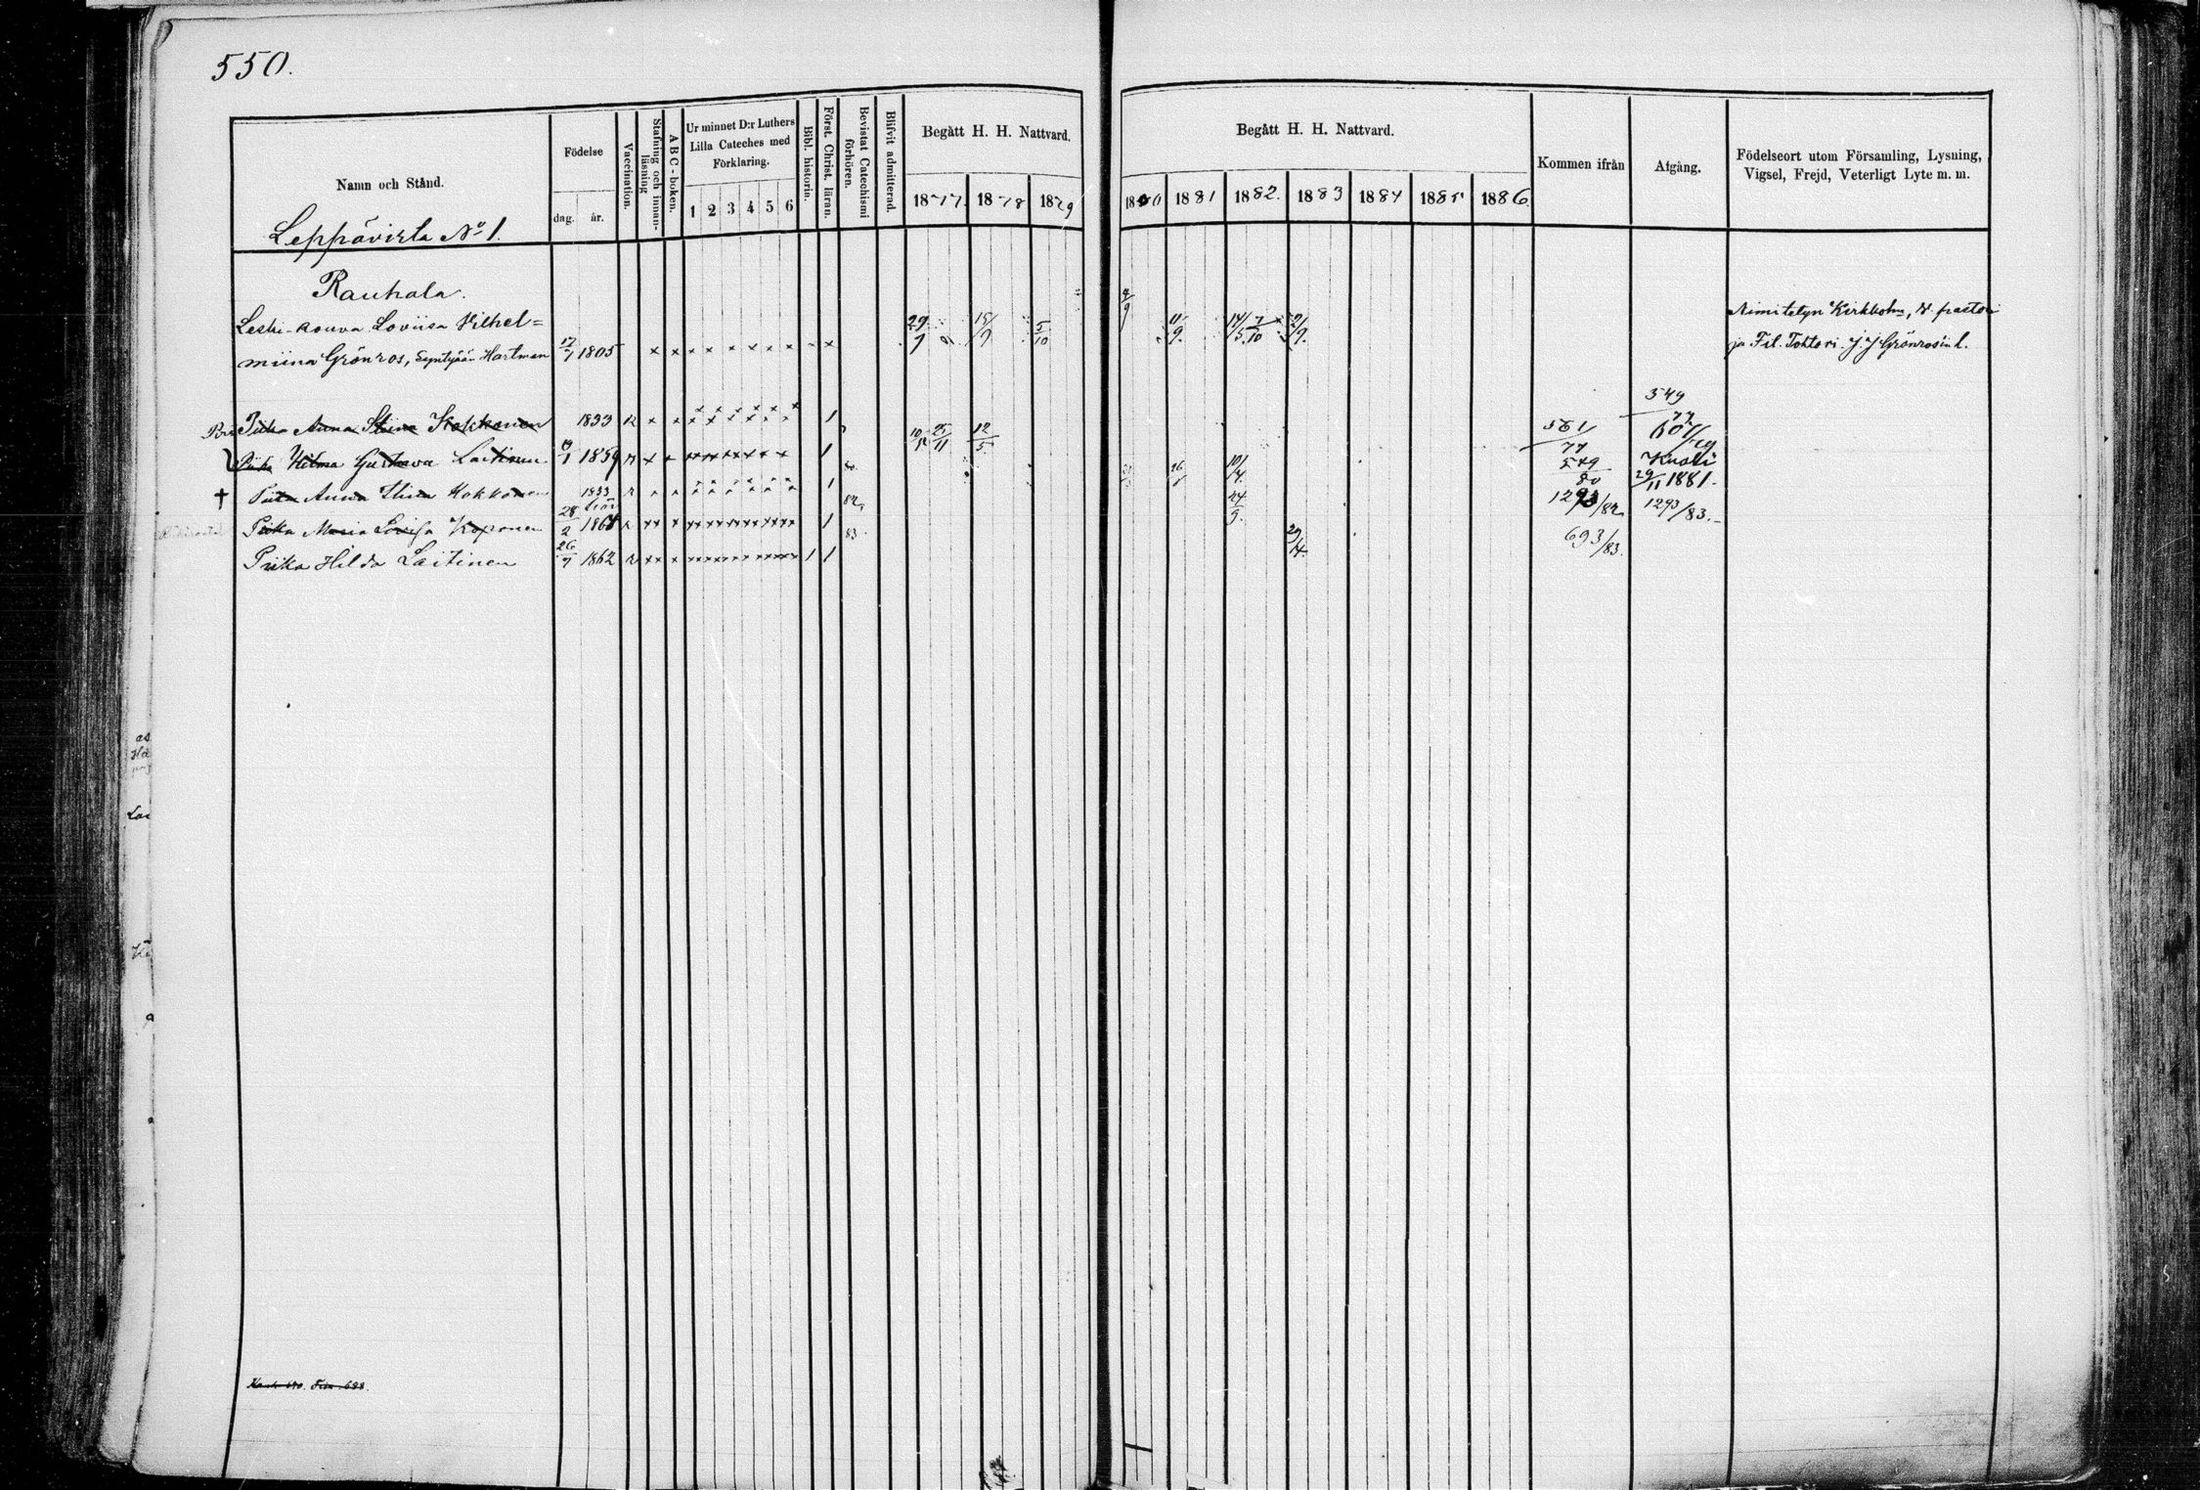 550.
Namn och Stånd.
Födelse
dag. år.
Vaccination.
Stafning och innanläsning
ABC-boken.
Ur minnet D:r Luthers Lilla Cateches med Förklaring.
1 2 3 4 5 6
Bibl. historia.
Först. Christ. läran.
Bevistat Catechismi förhören.
Blifvit admitterad.
Begått H. H. Nattvard.
1877. 1878 1879
Begått H. H. Nattvard.
1880 1881 1882. 1883 1884 1885 1886.
Kommen ifrån
Afgång.
Födelseort utom Församling, Lysning,
Vigsel, Frejd, Veterligt Lyte m. m.
Leppävirta No 1.
Rauhala.
Leski-rouva Loviisa Vilhel=
miina Grönros, syntyään Hartman 17/7 1805
29/9 15/9 5/10 4/9 11/9. 14/5 7/10 2/9.
Nimitelyn Kirkkoh:, V. pastori
ja Fil. Tohtori J. J Grönros'in l.
Piika Anna Stina Kokkonen 1833 1
25/11 12/5 561/77 549/77
Piika Hilma Gustava Laitinen 1859 1
10/4. 549/80 Kuosti 29/11 1881.
† Piika Anna Stina Kokkonen 1833 1
82 24/9. 1293/82 1293/83.
Piika Maria Lovisa Koponen 28/2 1861 1
83 29/4. 693/83.
Piika Hilda Laitinen 26/7 1862 1 1